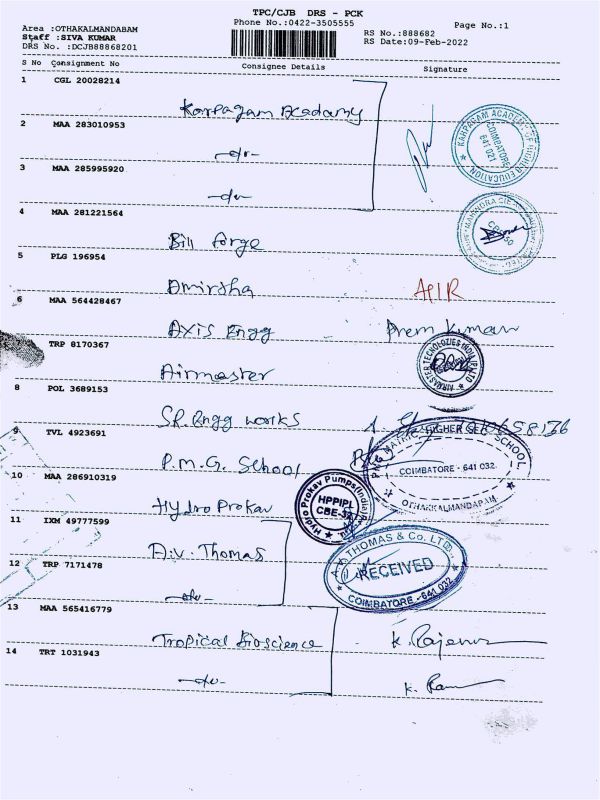 TPC/CJB DRS - PCK
Area :OTHAKALMANDABAM
Phone No.:0422-3505555
Page No.:1
Staff :SIVA KUMAR
RS No.:888682
DRS No. :DCJB88868201
RS Date:09-Feb-2022
S No Consignment No Consignee Details Signature
1 CGL 20028214
Karpagam Academy
2 MAA 283010953
-do-
3 MAA 285995920
-do-
KARPAGAM ACADEMY OF HIGHER EDUCATION
COIMBATORE
641 021
4 MAA 281221564
Bill forge
5 PLG 196954
Amirtha
6 MAA 564428467
Axis Engg Prem Kumar
TRP 8170367
Airmaster
8 POL 3689153
SR. Engg works
9 TVL 4923691
P.M.G. School
HIGHER SEC. SCHOOL
COIMBATORE - 641 032.
OTHAKKALMANDAPAM
10 MAA 286910319
Hydro Prokav
Hydro Prokav Pumps(India)
HPPIPL
11 IXM 49777599
A.V. Thomas
THOMAS & Co. LTD.
RECEIVED
COIMBATORE - 641 032
12 TRP 7171478
-do-
13 MAA 565416779
Tropical Bioscience
14 TRT 1031943
-do-